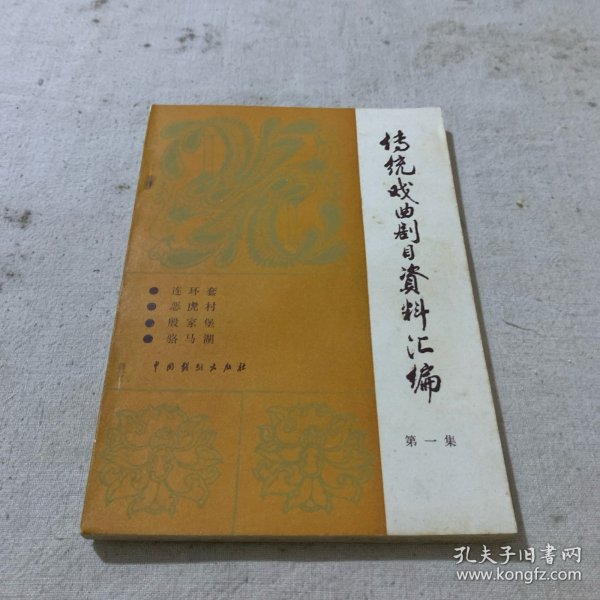 传统戏曲剧目資料汇编
第一集
● 连环套
● 恶虎村
● 殷家堡
● 骆马湖
中国戏剧出版社
孔夫子旧書网
www.kongfz.com